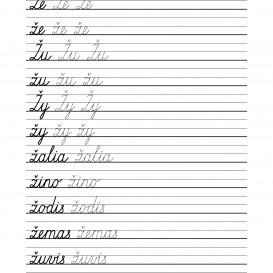 že že že
že že že
Žu Žu Žu
žu žu žu
Žy Žy Žy
žy žy žy
žalia žalia
žino žino
žodis žodis
žemas žemas
žuvis žuvis